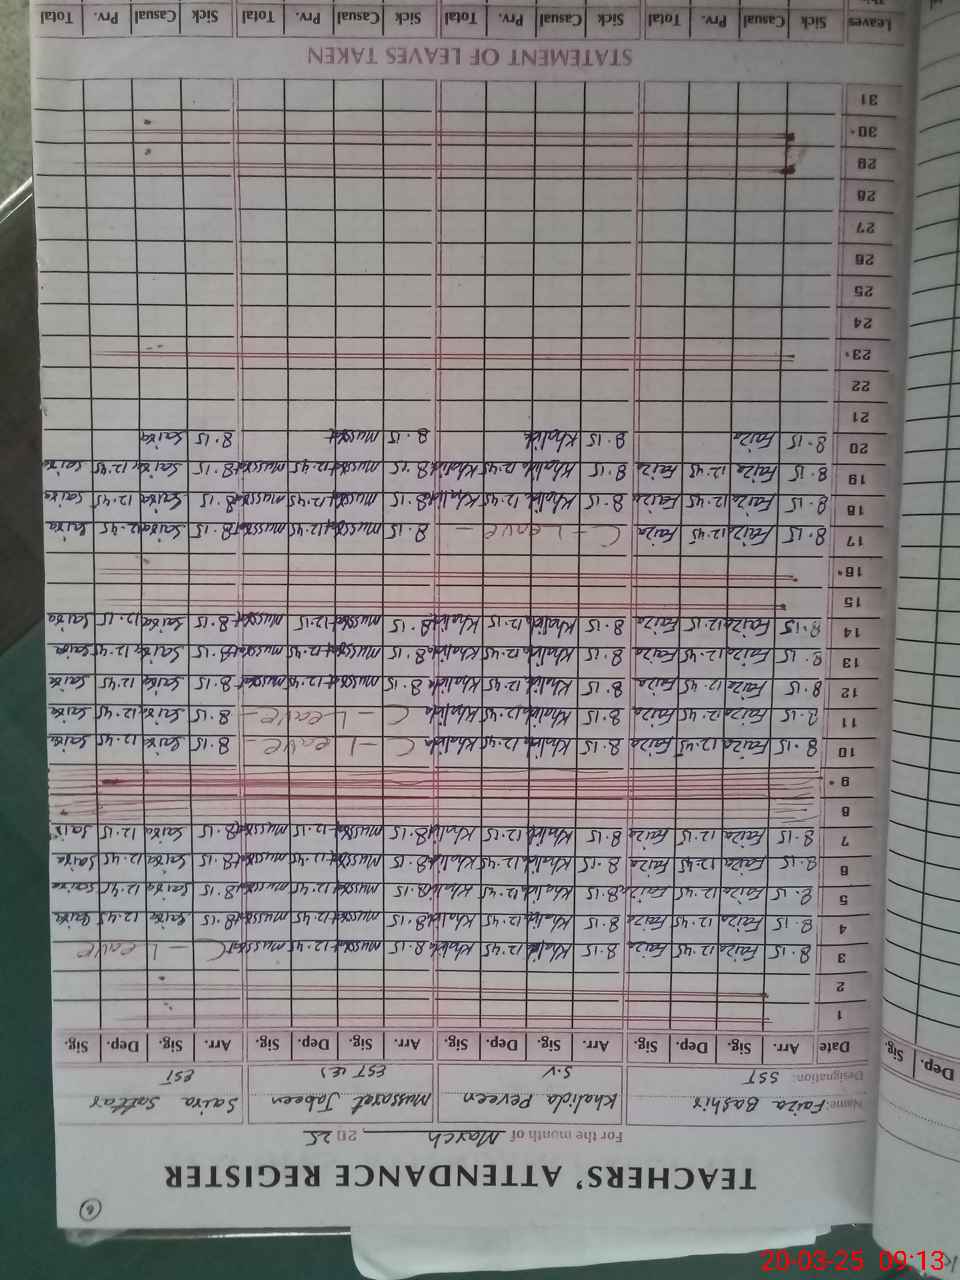 6
TEACHERS' ATTENDANCE REGISTER
For the month of March, 20 25
Name: Faiza Bashir Khalida Perveen Mussaret Jabeen Saira Sattar
Designation: SST S.V EST (E) EST
Date Arr. Sig. Dep. Sig. Arr. Sig. Dep. Sig. Arr. Sig. Dep. Sig. Arr. Sig. Dep. Sig.
1
2
3 8.15 Faiza 12.45 Faiza 8.15 Khalida 12.45 Khalida 8.15 Mussaret 12.45 Mussaret C - Leave
4 8.15 Faiza 12.45 Faiza 8.15 Khalida 12.45 Khalida 8.15 Mussaret 12.45 Mussaret 8.15 Saira 12.45 Saira
5 8.15 Faiza 12.45 Faiza 8.15 Khalida 12.45 Khalida 8.15 Mussaret 12.45 Mussaret 8.15 Saira 12.45 Saira
6 8.15 Faiza 12.45 Faiza 8.15 Khalida 12.45 Khalida 8.15 Mussaret 12.45 Mussaret 8.15 Saira 12.45 Saira
7 8.15 Faiza 12.15 Faiza 8.15 Khalida 12.15 Khalida 8.15 Mussaret 12.15 Mussaret 8.15 Saira 12.15 Saira
8
9
10 8.15 Faiza 12.45 Faiza 8.15 Khalida 12.45 Khalida C - Leave - 8.15 Saira 12.45 Saira
11 8.15 Faiza 12.45 Faiza 8.15 Khalida 12.45 Khalida C - Leave - 8.15 Saira 12.45 Saira
12 8.15 Faiza 12.45 Faiza 8.15 Khalida 12.45 Khalida 8.15 Mussaret 12.45 Mussaret 8.15 Saira 12.45 Saira
13 8.15 Faiza 12.45 Faiza 8.15 Khalida 12.45 Khalida 8.15 Mussaret 12.45 Mussaret 8.15 Saira 12.45 Saira
14 8.15 Faiza 12.15 Faiza 8.15 Khalida 12.15 Khalida 8.15 Mussaret 12.15 Mussaret 8.15 Saira 12.15 Saira
15
16
17 8.15 Faiza 12.45 Faiza C - Leave - 8.15 Mussaret 12.45 Mussaret 8.15 Saira 12.45 Saira
18 8.15 Faiza 12.45 Faiza 8.15 Khalida 12.45 Khalida 8.15 Mussaret 12.45 Mussaret 8.15 Saira 12.45 Saira
19 8.15 Faiza 12.45 Faiza 8.15 Khalida 12.45 Khalida 8.15 Mussaret 12.45 Mussaret 8.15 Saira 12.45 Saira
20 8.15 Faiza 8.15 Khalida 8.15 Mussaret 8.15 Saira
21
22
23
24
25
26
27
28
29
30
31
STATEMENT OF LEAVES TAKEN
Leaves Sick Casual Prv. Total Sick Casual Prv. Total Sick Casual Prv. Total Sick Casual Prv. Total
Dep. Sig.
20-03-25 09:13